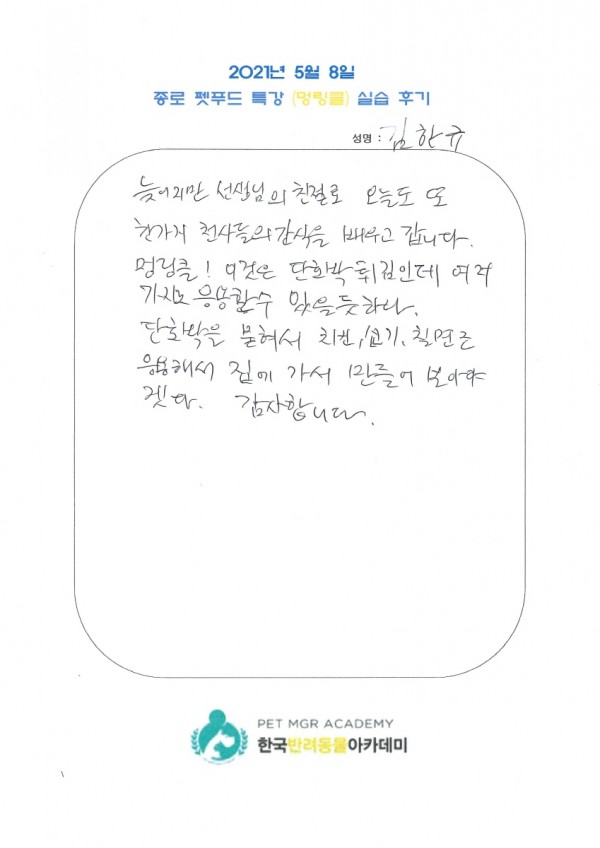 2021년 5월 8일
종로 펫푸드 특강 (멍링클) 실습 후기
성명 : 김한규
늦어지만 선생님의 친절로 오늘도 또
한가지 천사들의 간식을 배우고 갑니다.
멍링클! 이것은 단화박 튀김인데 여러
가지로 응용할수 있을듯하다.
단화박을 묻혀서 치킨, 고기, 칠면조
응용해서 집에 가서 만들어 보아야
겠다. 감사합니다.
PET MGR ACADEMY
한국반려동물아카데미